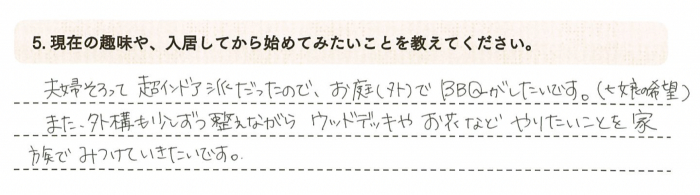 5. 現在の趣味や、入居してから始めてみたいことを教えてください。
夫婦そろって超インドア派だったので、お庭(外)でBBQがしたいです。(←娘の希望)
また、外構も少しずつ整えながら ウッドデッキや お花など やりたいことを 家
族で みつけていきたいです。